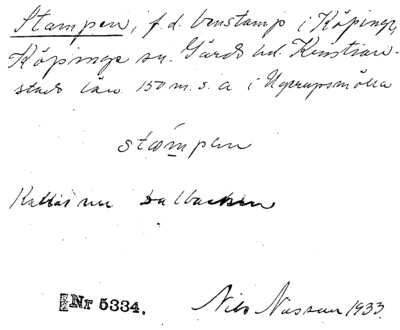 Stampen, f.d. benstamp i Köpinge,
Köpinge sn. Gärds hd. Kristian-
stads län. 150 m. s. a i Ugerupsmölla
stampen
Kallas nu Dalbacken
Nr 5334.
Nils Nilsson 1933.